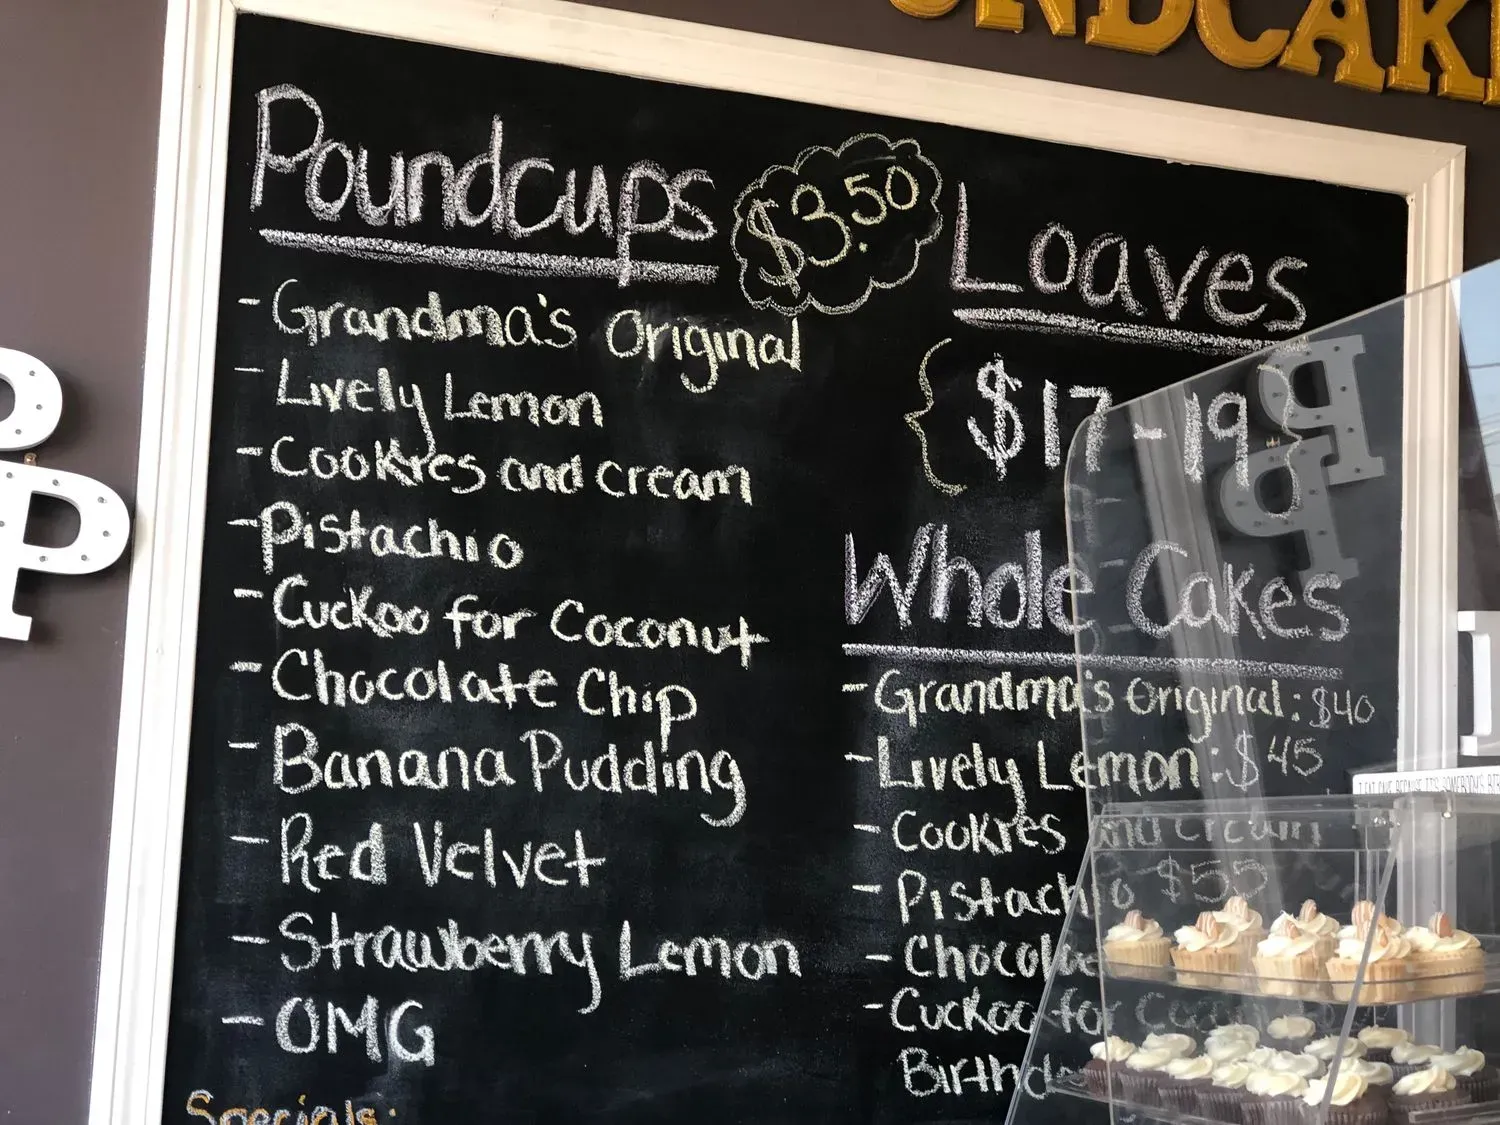 Poundcups
$3.50
- Grandma's Original
- Lively Lemon
- Cookies and cream
- Pistachio
- Cuckoo for Coconut
- Chocolate Chip
- Banana Pudding
- Red Velvet
- Strawberry Lemon
- OMG
Specials:
Loaves
{ $17-19 }
Whole Cakes
- Grandma's Original: $40
- Lively Lemon: $45
- Cookies and cream
- Pistachio
- Cuckoo for
P
P